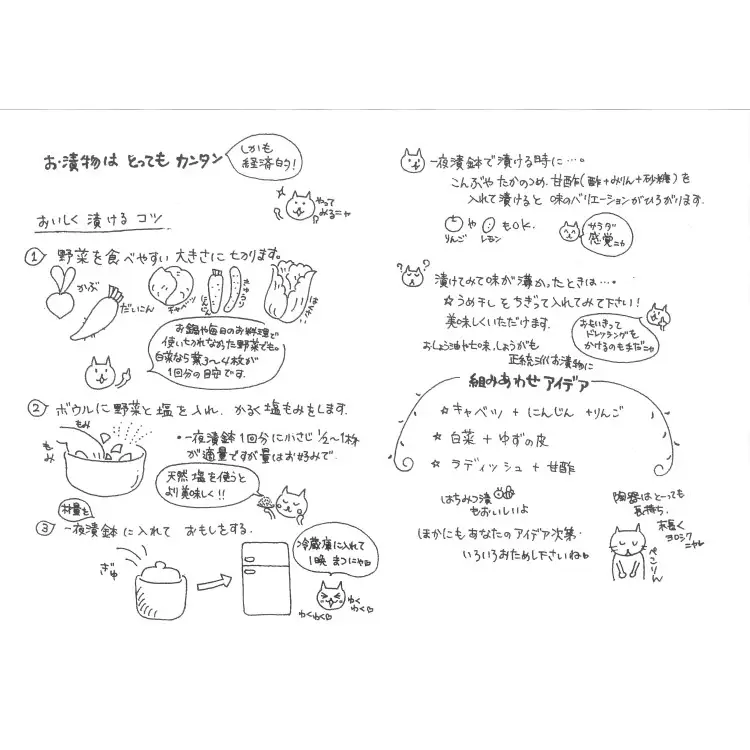 お漬物は とっても カンタン
しかも
経済的!
やって
みるニャ
おいしく 漬ける コツ
① 野菜を食べやすい 大きさに切ります。
かぶ
だいこん
キャベツ
にんじん
きゅうり
はくさい
お鍋や毎日のお料理で
使い切れなかった野菜でも。
白菜なら葉3〜4枚が
1回分の目安です。
② ボウルに野菜と塩を入れ、かるく塩もみをします。
もみ
もみ
・一夜漬鉢1回分に小さじ1/2〜1杯
が適量ですが量はお好みで。
天然塩を使うと
より美味しく!!
材量を
③ 一夜漬鉢に入れて おもしをする。
ぎゅ
冷蔵庫に入れて
1晩 まつにゃ
わくわく
わくわく
一夜漬鉢で漬ける時に…。
こんぶや たかのつめ、甘酢(酢+みりん+砂糖)を
入れて漬けると 味のバリエーションがひろがります。
や もOK.
りんご レモン
サラダ
感覚ニャ
漬けてみて味が薄かったときは…。
☆うめ干しをちぎって入れてみて下さい!
美味しくいただけます.
おもいきって
ドレッシングを
かけるのもまたニャ
おしょう油や七味、しょうがも
正統派お漬物に
組みあわせ アイデア
☆ キャベツ + にんじん +りんご
☆ 白菜 + ゆずの皮
☆ ラディッシュ + 甘酢
はちみつ漬
もおいしいよ
ほかにもあなたのアイデア次第、
いろいろおためし下さいね
陶器はとっても
長持ち.
末長く
ヨロシク
ニャ
ぺこりん